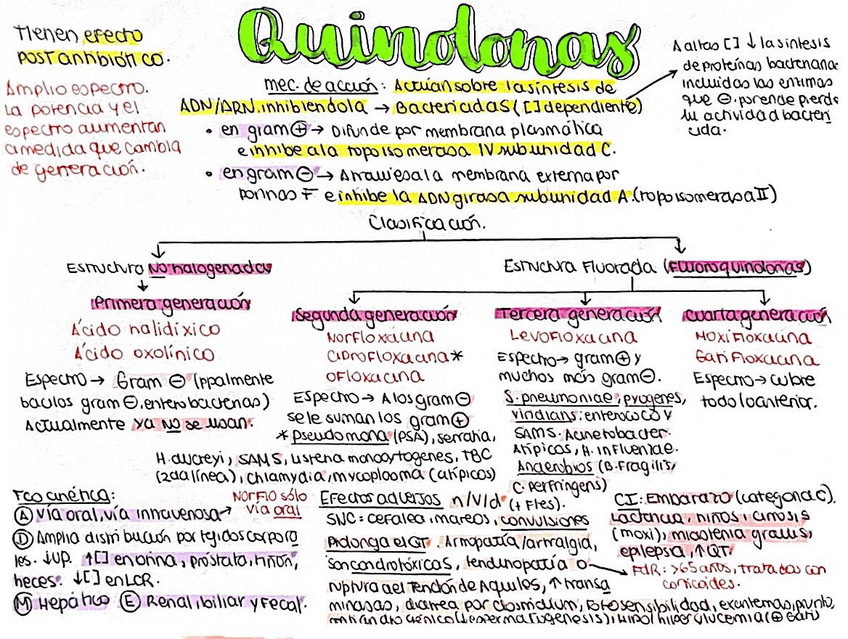 Quinolonas
Tienen efecto
postantibiótico.
Amplio espectro.
La potencia y el
espectro aumentan
a medida que cambia
de generación.
mec. de acción: Actúan sobre la síntesis de
ADN/ARN inhibiéndola → Bactericidas ([ ] dependiente)
A altas [ ] ↓ la síntesis
de proteínas bacteriana
incluidas las enzimas
que ⊖, por ende pierde
su actividad bacteri
cida.
• en gram ⊕ → Difunde por membrana plasmática
e inhibe a la topoisomerasa IV subunidad C.
• en gram ⊖ → Atraviesa la membrana externa por
porinas F e inhibe la ADN girasa subunidad A. (topoisomerasa II)
Clasificación.
Estructura No halogenadas
Estructura Fluorada (Fluoroquinolonas)
Primera generación
Ácido nalidíxico
Ácido oxolínico
Espectro → Gram ⊖ (ppalmente
bacilos gram ⊖, enterobacterias)
Actualmente ya NO se usan.
Segunda generación
Norfloxacina
Ciprofloxacina *
Ofloxacina
Espectro → A los gram ⊖
se le suman los gram ⊕
* pseudomona (PSA), serratia,
H. ducreyi, SAMS, listeria monocytogenes, TBC
(2da línea), chlamydia, mycoplasma (atípicos)
Tercera generación
Levofloxacina
Espectro → gram ⊕ y
muchos más gram ⊖.
S. pneumoniae, pyogenes,
viridians, enterococo y
SAMS. Acinetobacter.
Atípicos, H. influenzae.
Anaerobios (B. Fragilis,
C. Perfringens)
Cuarta generación
Moxifloxacina
Gatifloxacina
Espectro → cubre
todo lo anterior.
Fcocinética:
Ⓐ Vía oral, vía intravenosa → Norflo sólo
vía oral
Ⓓ Amplia distribución por tejidos corpora
les. ↓UP. ↑[ ] en orina, próstata, riñón,
heces. ↓[ ] en LCR.
Ⓜ Hepático Ⓔ Renal, biliar y fecal.
Efectos adversos n/v/d (+ Ftes).
SNC: cefalea, mareos, convulsiones
Prolonga el QT. Artropatía/artralgia,
son condrotóxicas, tendinopatía o
ruptura del Tendón de Aquiles, ↑ transa
minasas, diarrea por clostridium, fotosensibilidad, exantemas, prurito,
CI: Embarazo (categoría C).
Lactancia, niños, cirrosis
(moxi), miastenia gravis,
epilepsia, ↑QT.
FdR: >65 años, tratados con
corticoides.